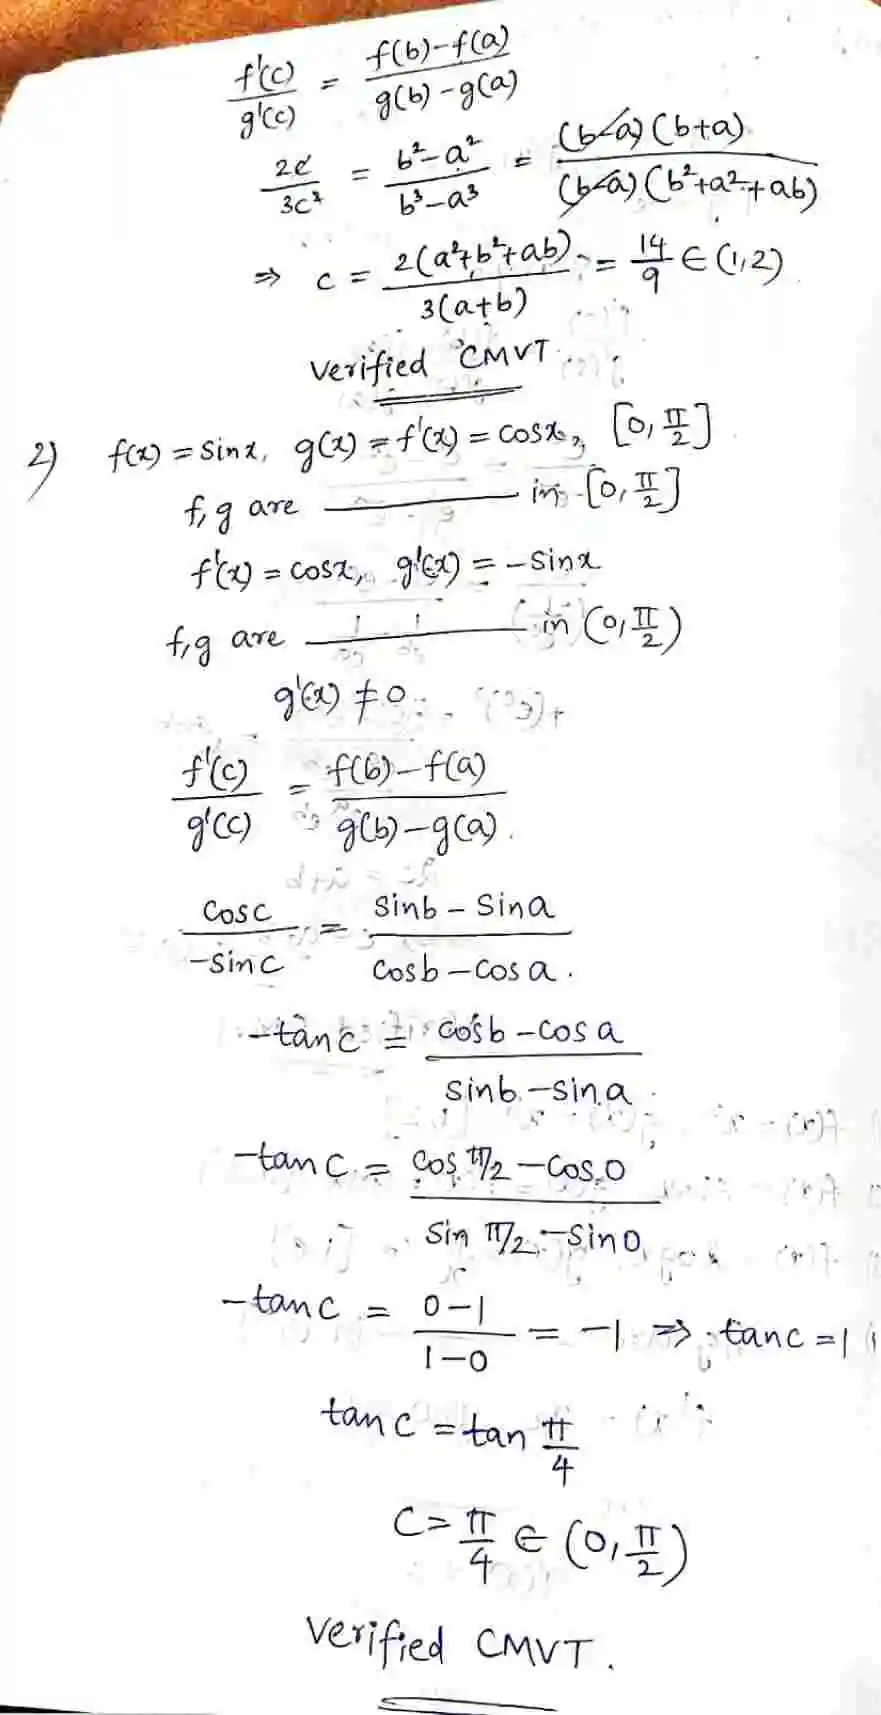 f'(c)/g'(c) = f(b)-f(a)/g(b)-g(a)
2c/3c² = b²-a²/b³-a³ = (b-a)(b+a)/(b-a)(b²+a²+ab)
⇒ c = 2(a²+b²+ab)/3(a+b) = 14/9 ∈ (1,2)
Verified CMVT.
2) f(x) = sinx, g(x) = f'(x) = cosx, [0, π/2]
f,g are ——— in [0, π/2]
f'(x) = cosx, g'(x) = -sinx
f,g are ——— in (0, π/2)
g'(x) ≠ 0
f'(c)/g'(c) = f(b)-f(a)/g(b)-g(a).
cosc/-sinc = sinb - sina/cosb - cosa.
-tanc = cosb - cosa/sinb - sina
-tanc = cos π/2 - cos0/sin π/2 - sin0
-tanc = 0-1/1-0 = -1 ⇒ tanc = 1
tanc = tan π/4
c = π/4 ∈ (0, π/2)
Verified CMVT.